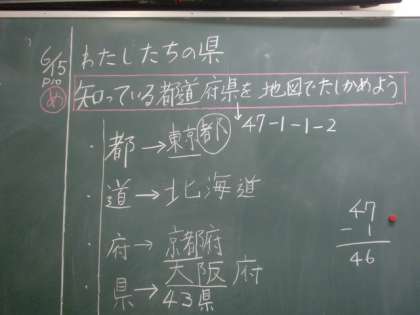 6/15 わたしたちの県
P10
め 知っている都道府県を地図でたしかめよう
・都→東京都 47-1-1-2
・道→北海道
・府→京都府
大阪府
・県→43県
47
-1
46